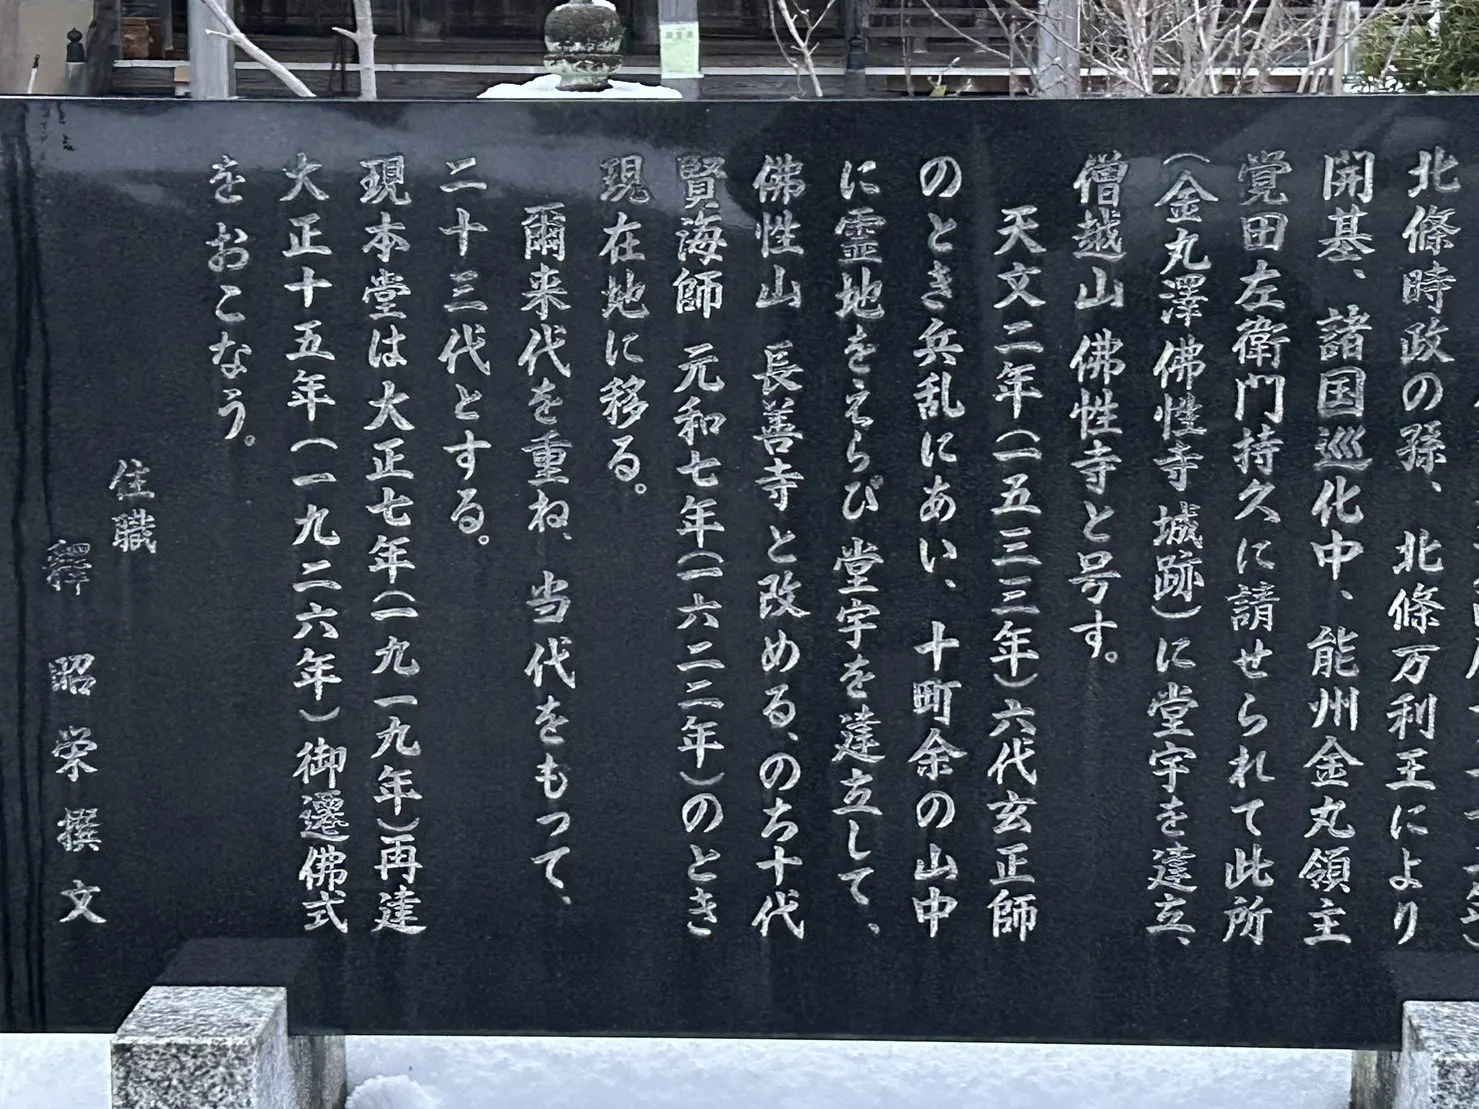 北條時政の孫、北條万利王により
開基、諸国巡化中、能州金丸領主
覚田左衛門持久に請せられて此所
（金丸澤佛性寺城跡）に堂宇を建立、
僧越山 佛性寺と号す。
天文二年（一五三三年）六代玄正師
のとき兵乱にあい、十町余の山中
に霊地をえらび堂宇を建立して、
佛性山 長善寺と改める、のち十代
賢海師 元和七年（一六二二年）のとき
現在地に移る。
爾来代を重ね、当代をもって、
二十三代とする。
現本堂は大正七年（一九一九年）再建
大正十五年（一九二六年）御遷佛式
をおこなう。
住職
釋 昭栄撰文